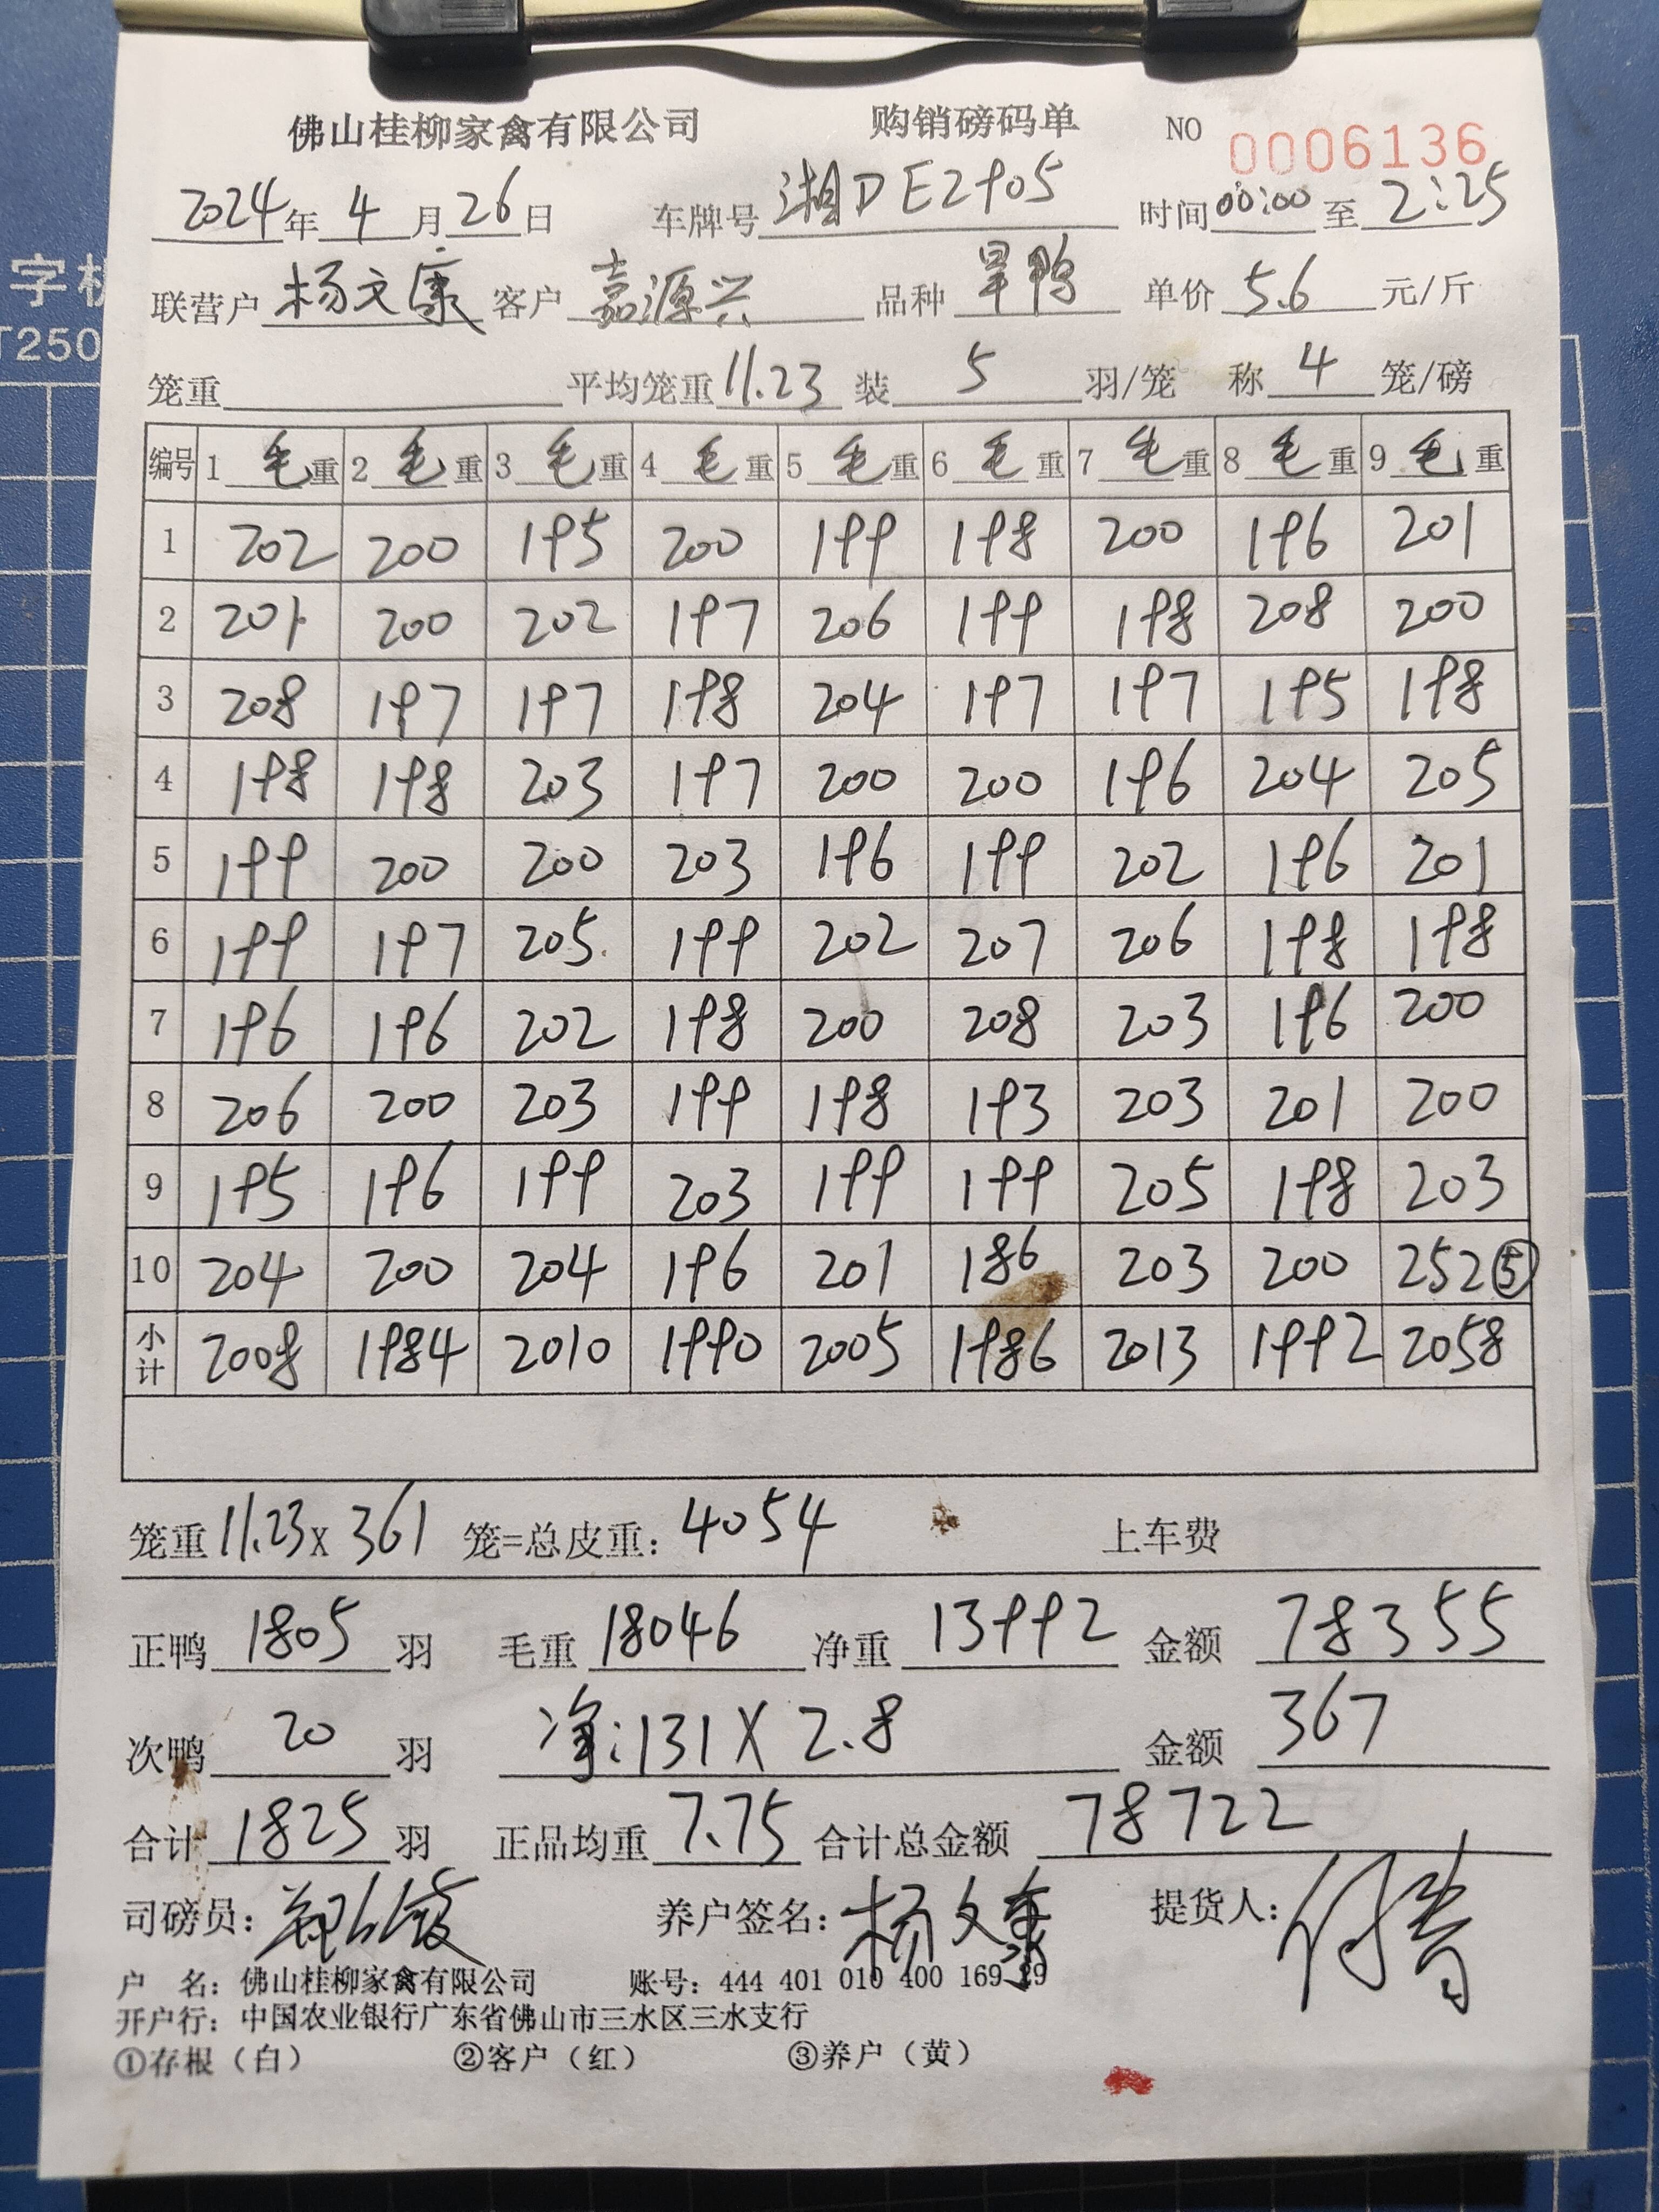 佛山桂柳家禽有限公司 购销磅码单 NO 0006136
2024年4月26日 车牌号 湘DE2905 时间 00:00 至 2:25
字机
T250
联营户 杨文康 客户 嘉源兴 品种 旱鸭 单价 5.6 元/斤
笼重 平均笼重 11.23 装 5 羽/笼 称 4 笼/磅
编号 1 毛重 2 毛重 3 毛重 4 毛重 5 毛重 6 毛重 7 毛重 8 毛重 9 毛重
1 202 200 195 200 199 198 200 196 201
2 201 200 202 197 206 199 198 208 200
3 208 197 197 198 204 197 197 195 198
4 198 198 203 197 200 200 196 204 205
5 199 200 200 203 196 199 202 196 201
6 199 197 205 199 202 207 206 198 198
7 196 196 202 198 200 208 203 196 200
8 206 200 203 199 198 193 203 201 200
9 195 196 199 203 199 199 205 198 203
10 204 200 204 196 201 186 203 200 252⑤
小计 2008 1984 2010 1990 2005 1986 2013 1992 2058
笼重 11.23 x 361 笼=总皮重: 4054 上车费
正鸭 1805 羽 毛重 18046 净重 13992 金额 78355
次鸭 20 羽 净:131 X 2.8 金额 367
合计 1825 羽 正品均重 7.75 合计总金额 78722
司磅员: 养户签名: 杨文康 提货人:
户 名: 佛山桂柳家禽有限公司 账号: 444 401 010 400 169 29
开户行: 中国农业银行广东省佛山市三水区三水支行
①存根（白） ②客户（红） ③养户（黄）